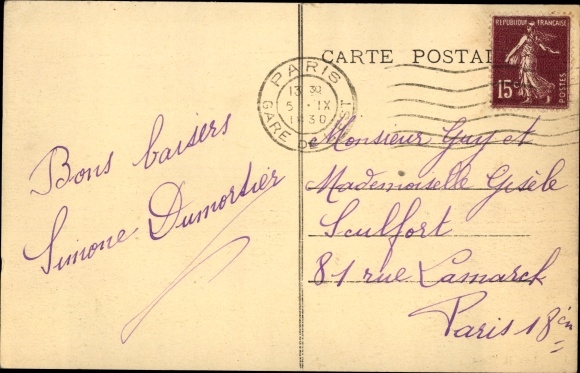 CARTE POSTALE
REPUBLIQUE FRANÇAISE
15c
POSTES
PARIS
13 30
5 - IX
1930
GARE DE L'EST
Bons baisers
Simone Dumortier
Monsieur Guy et
Mademoiselle Gisèle
Sculfort
81 rue Lamarck
Paris 18 èm